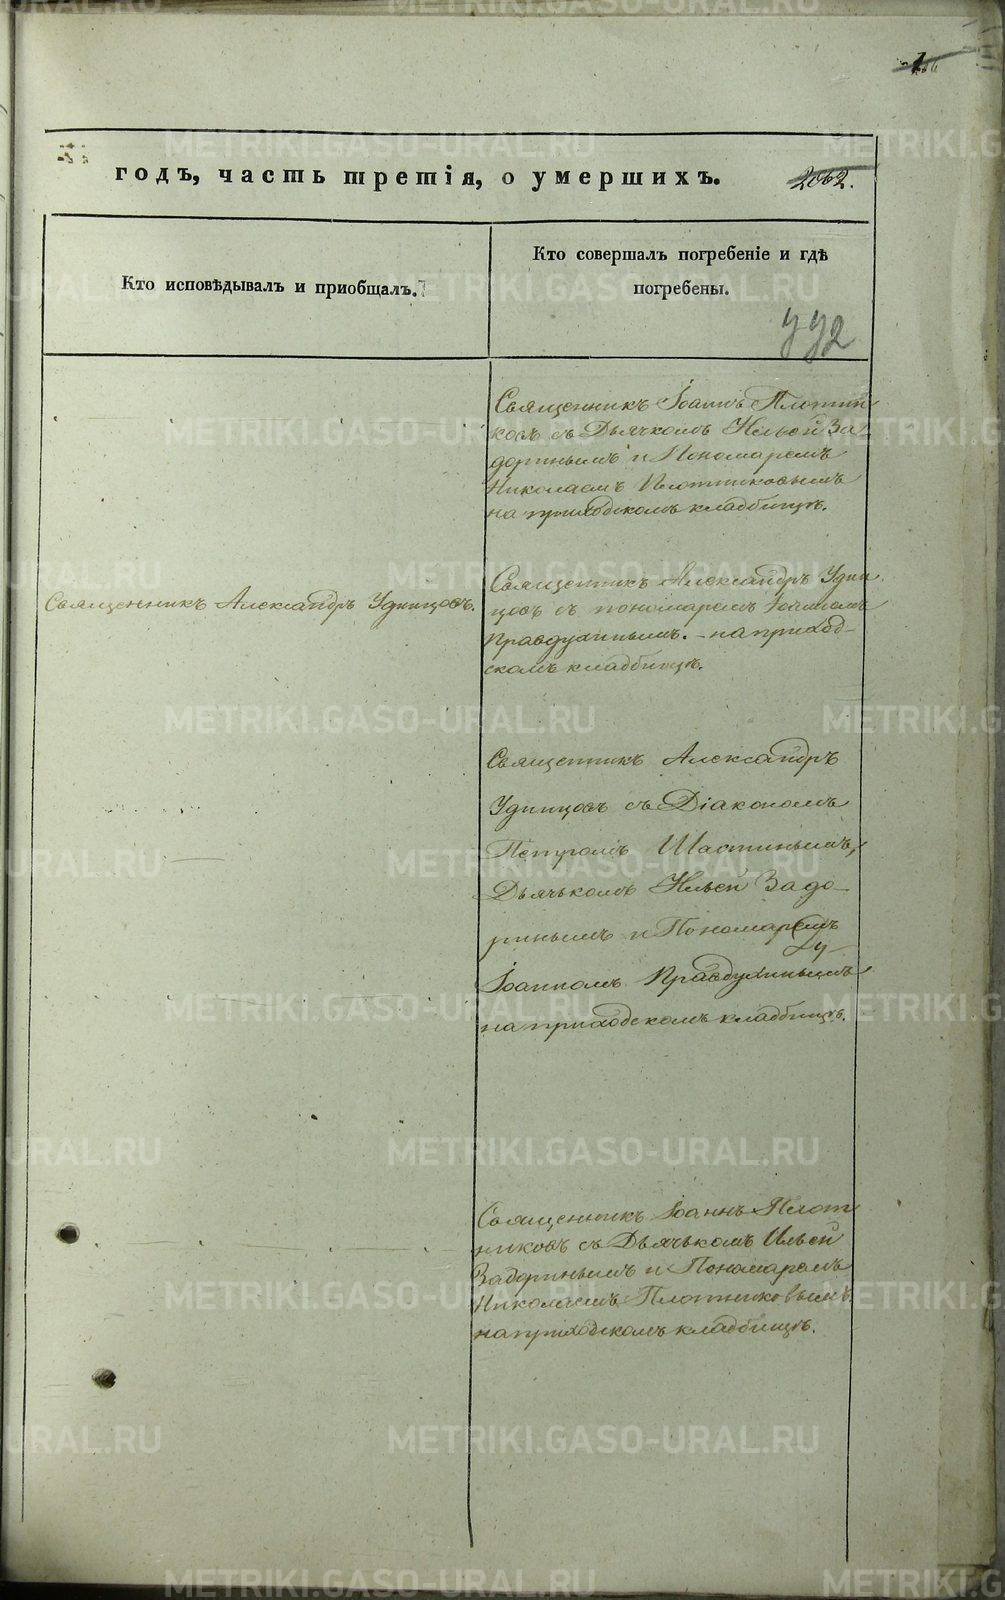 годъ, часть третія, о умершихъ.
2062.
Кто исповѣдывалъ и приобщалъ.
Кто совершалъ погребеніе и гдѣ
погребены.
Священникъ Іоаннъ Плотни
ковъ съ Дьячкомъ Ильей За-
доринымъ и Пономаремъ
Николаемъ Плотниковымъ
на приходскомъ кладбищѣ.
Священникъ Александръ Удинцовъ.
Священникъ Александръ Удин
цовъ съ пономаремъ Іоанномъ
Правдухинымъ. - на приход-
скомъ кладбищѣ.
Священникъ Александръ
Удинцовъ съ Діакономъ
Петромъ Шастинымъ,
Дьячькомъ Ильей Задо-
ринымъ и Пономаремъ
Іоанномъ Правдухинымъ
на приходскомъ кладбищѣ.
Священникъ Іоаннъ Плот
никовъ съ Дьячькомъ Ильей
Задоринымъ и Пономаремъ
Николаемъ Плотниковымъ
на приходскомъ кладбищѣ.
METRIKI.GASO-URAL.RU